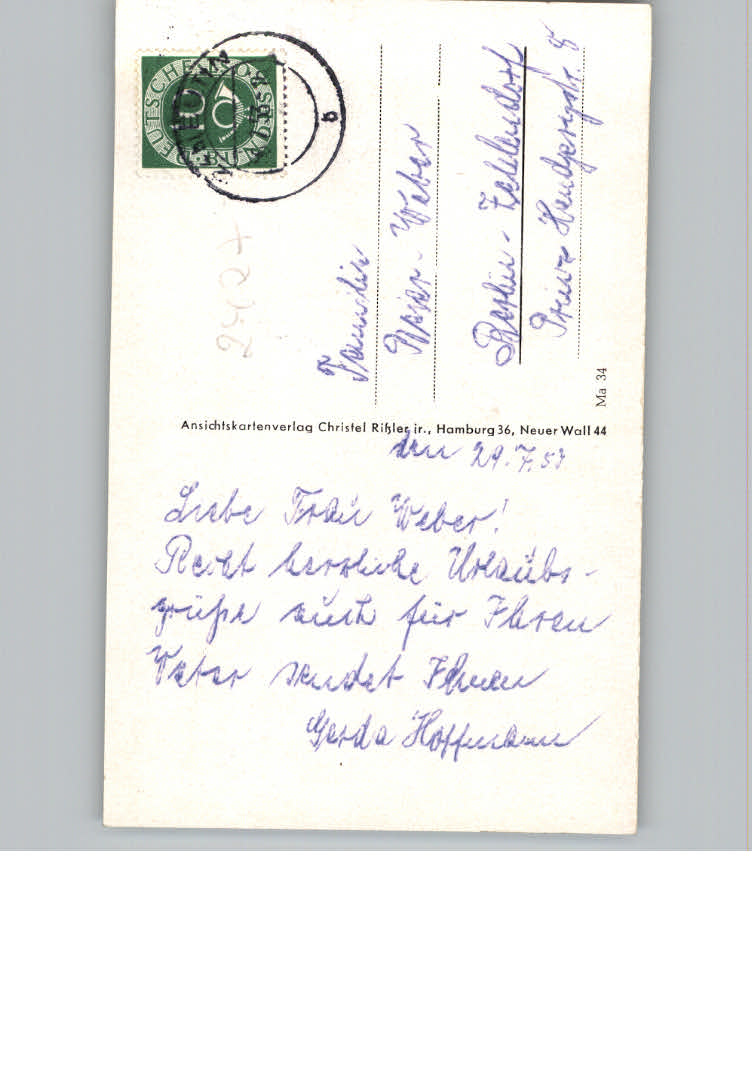 DEUTSCHE BUNDESPOST
Familie
Weber
Berlin - Zehlendorf
Prinz Handjerystr. 8
Ma 34
Ansichtskartenverlag Christel Rißler jr., Hamburg 36, Neuer Wall 44
den 29.7.53
Liebe Frau Weber!
Recht herzliche Urlaubs-
grüße auch für Ihren
Vater sendet Ihnen
Gerda Hoffmann